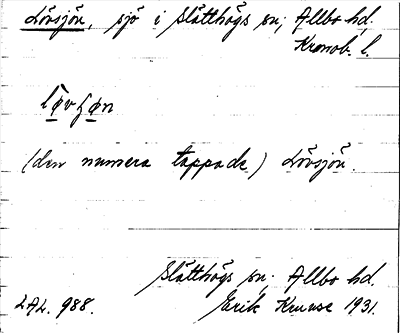 Lövsjön, sjö i Slätthögs sn; Allbo hd.
Kronob. l.
(den numera tappade) Lövsjön.
Slätthögs sn. Allbo hd.
LAL. 988. Erik Kruuse 1931.